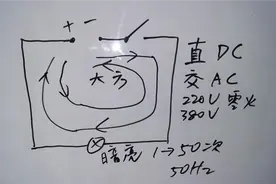 + -
直 DC
大方
交 AC
220V 零火
380V
暗亮 1→50次
50Hz